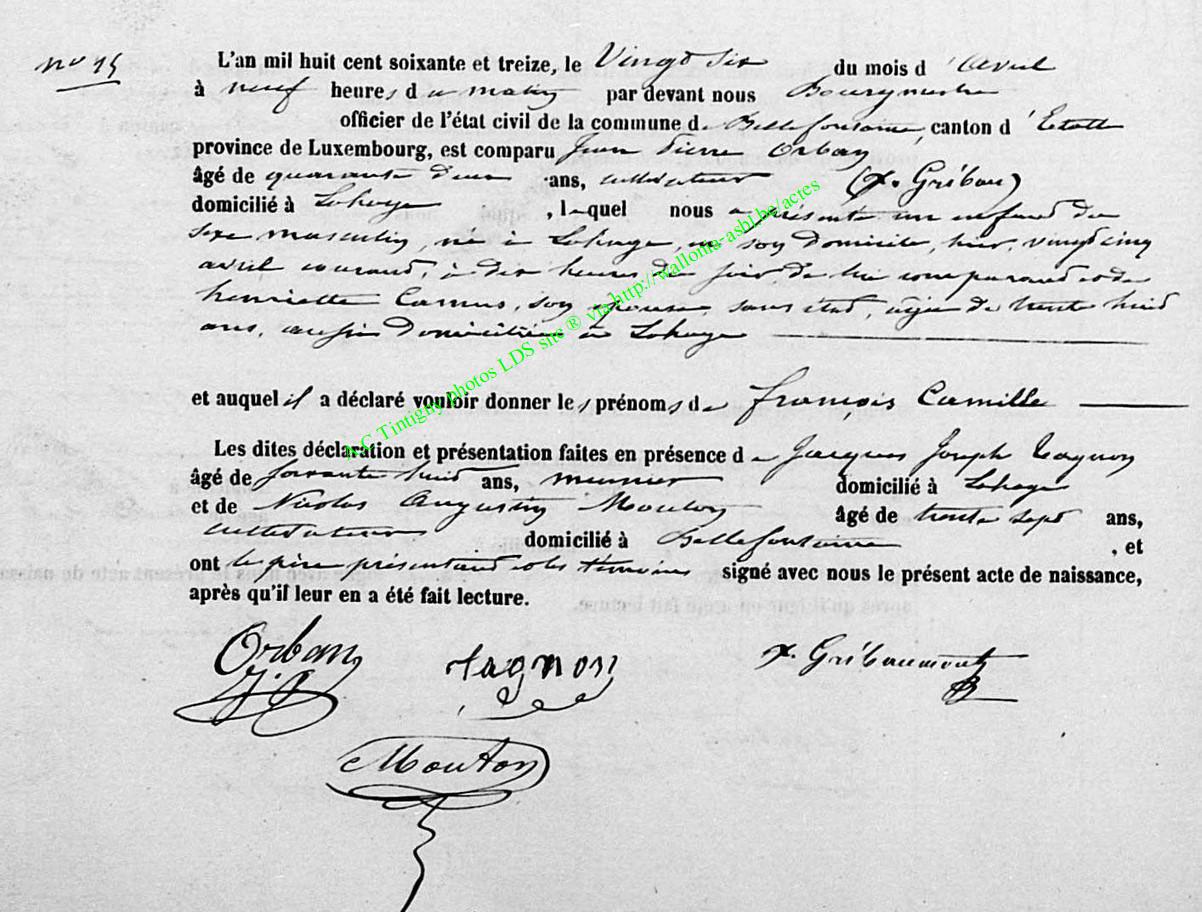 no 15
L'an mil huit cent soixante et treize, le Vingt Six du mois d'Avril
à neuf heures du matin par devant nous Bourgmestre
officier de l'état civil de la commune de Bellefontaine, canton d'Etalle
province de Luxembourg, est comparu Jean Pierre Orban
âgé de quarante deux ans, cultivateur (x. Gribau)
domicilié à Lahage, lequel nous a présenté un enfant du
sexe masculin, né à Lahage, en son domicile, hier, vingt cinq
avril courant, à dix heures du soir de lui comparant et de
henriette Camus, son épouse, sans état, âgée de trente huit
ans, aussi domiciliée à Lahage
et auquel il a déclaré vouloir donner les prénoms de françois Camille
Les dites déclaration et présentation faites en présence de Jacques Joseph Tagnon
âgé de soixante huit ans, meunier domicilié à Lahage
et de Nicolas Augustin Mouton âgé de trente sept ans,
cultivateur domicilié à Bellefontaine, et
ont le père présentant et les témoins signé avec nous le présent acte de naissance,
après qu'il leur en a été fait lecture.
Orban J.P. Tagnon x. Gribaumont
Mouton
A.C Tintigny photos LDS site ® via http://wallonia-asbl.be/actes